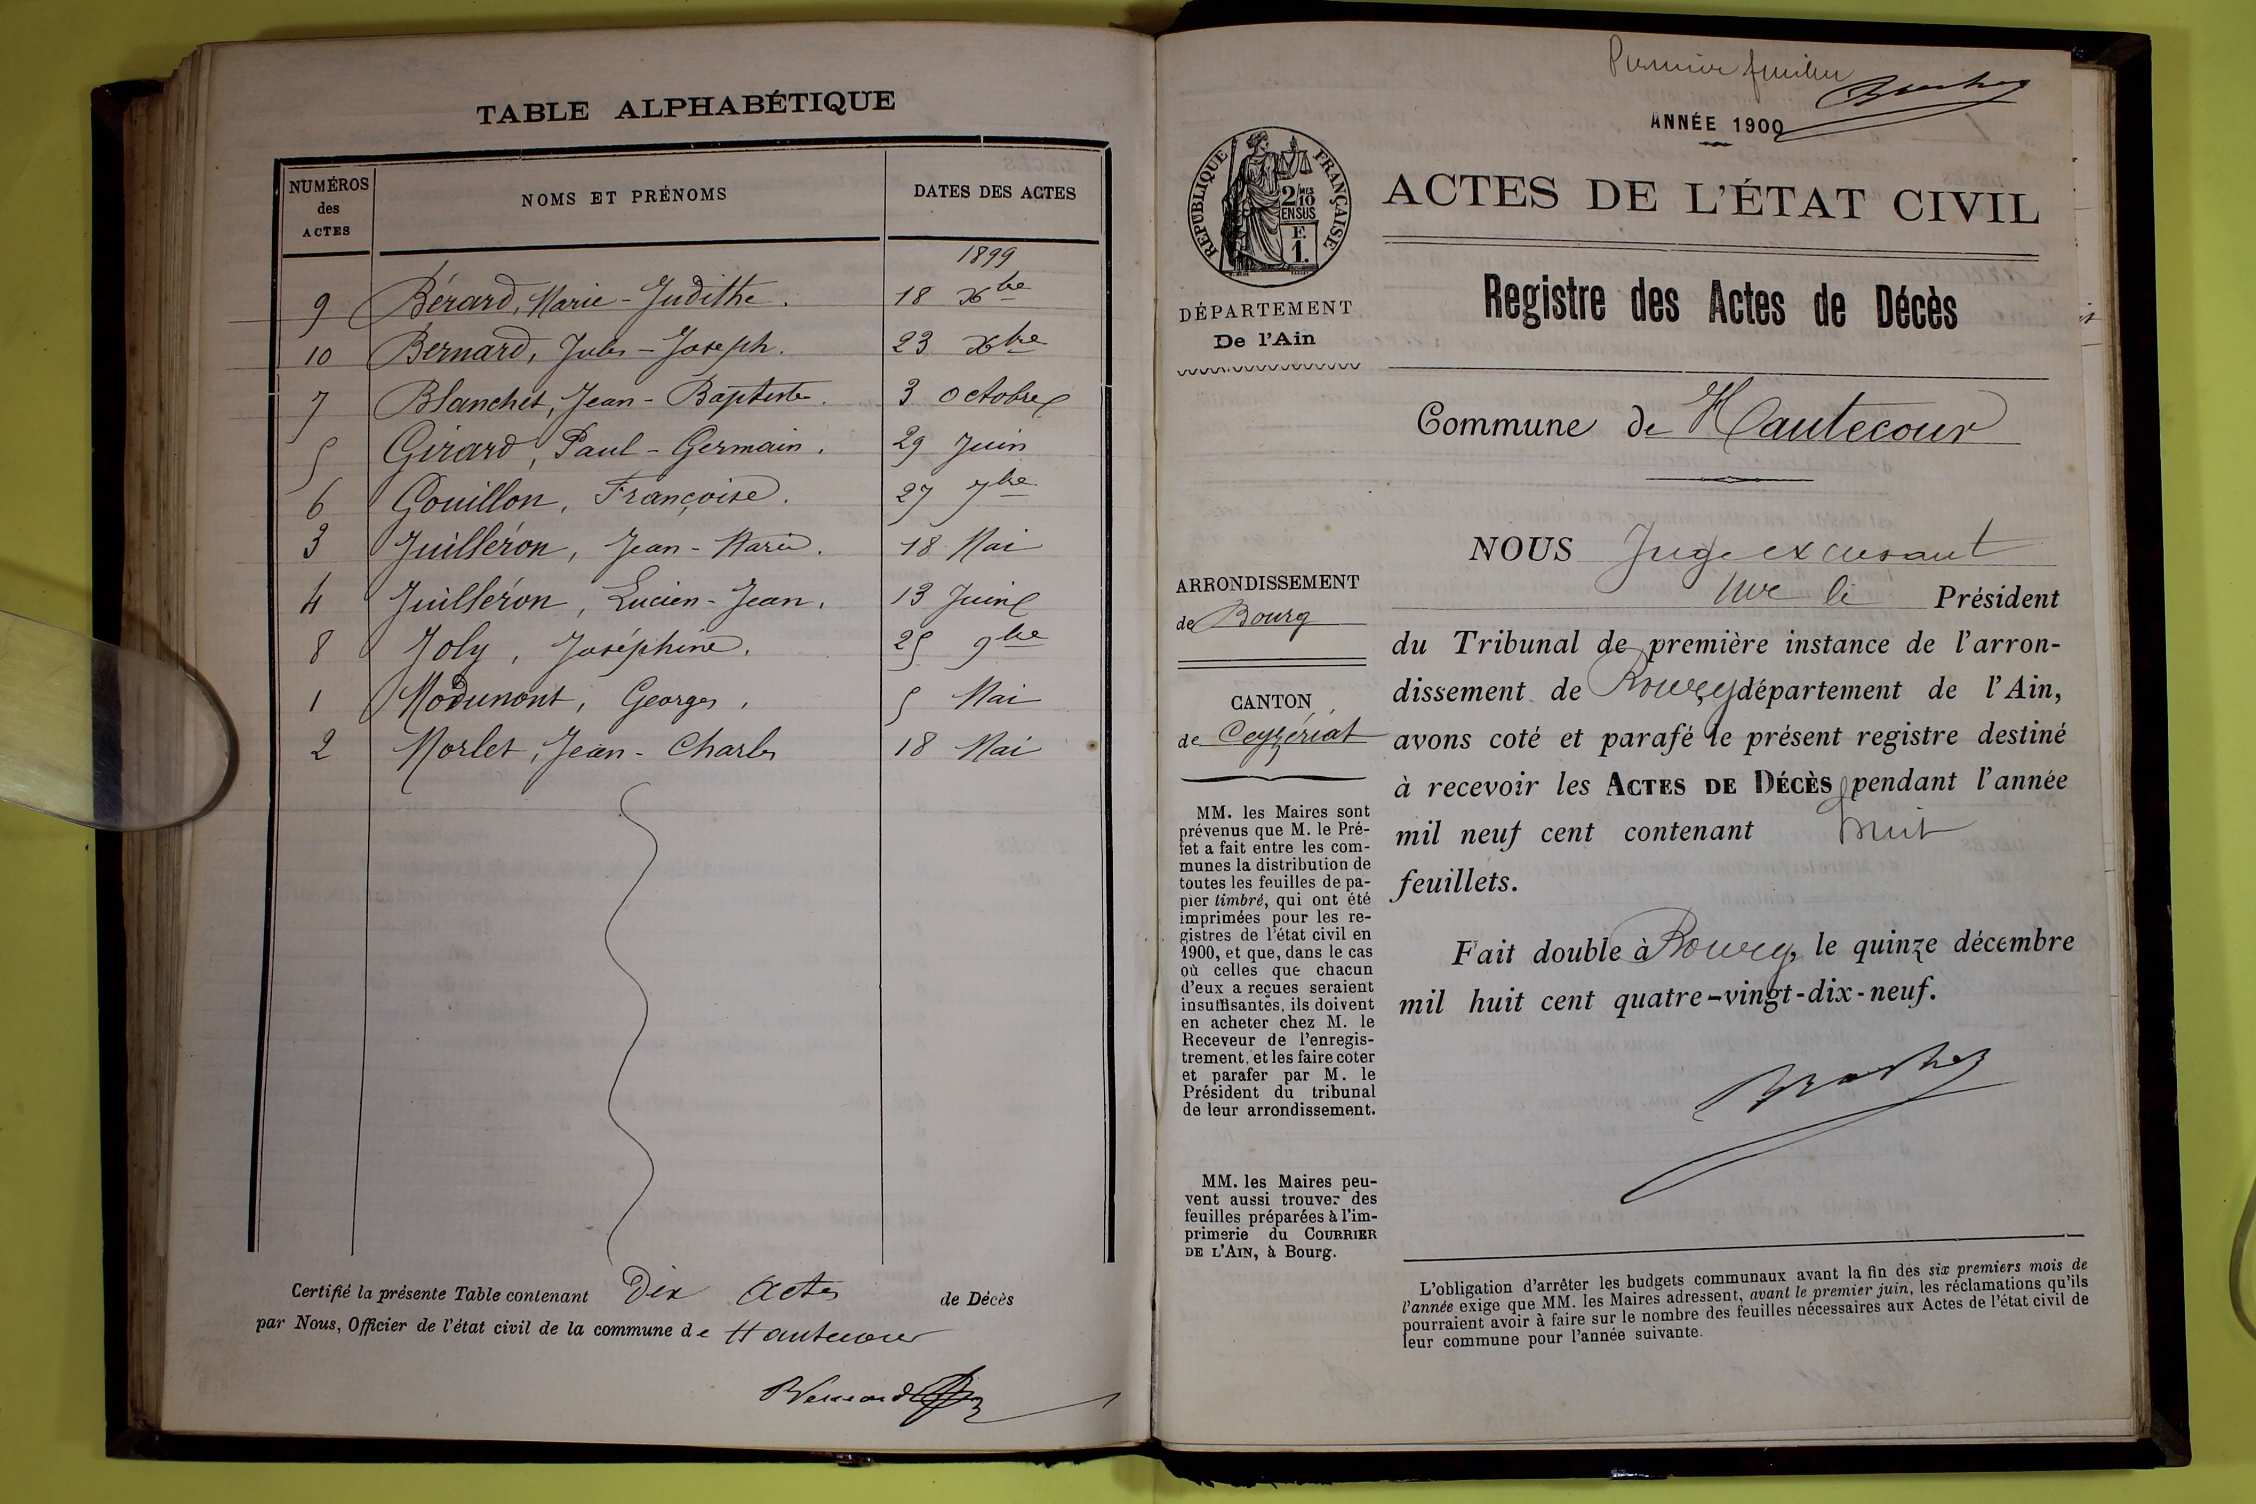 TABLE ALPHABÉTIQUE
NUMÉROS des ACTES NOMS ET PRÉNOMS DATES DES ACTES
1899
9 Bérard, Marie-Judithe. 18 Xbre
10 Bernard, Jules-Joseph. 23 Xbre
7 Blanchet, Jean-Baptiste. 3 octobre
5 Girard, Paul-Germain. 29 Juin
6 Gouillon, Françoise. 27 7bre
3 Juilléron, Jean-Marie. 18 Mai
4 Juilléron, Lucien-Jean. 13 Juin
8 Joly, Joséphine. 25 9bre
1 Modumont, Georges, 5 Mai
2 Morlet, Jean-Charles 18 Mai
Certifié la présente Table contenant Dix actes de Décès
par Nous, Officier de l'état civil de la commune de Hautecour
Bernard
Premier feuillet
ANNÉE 1900
RÉPUBLIQUE FRANÇAISE
2/10 MES
EN SUS
F.
1.
ACTES DE L'ÉTAT CIVIL
DÉPARTEMENT
De l'Ain
Registre des Actes de Décès
Commune de Hautecour
ARRONDISSEMENT
de Bourg
CANTON
de Ceyzériat
MM. les Maires sont
prévenus que M. le Pré-
fet a fait entre les com-
munes la distribution de
toutes les feuilles de pa-
pier timbré, qui ont été
imprimées pour les re-
gistres de l'état civil en
1900, et que, dans le cas
où celles que chacun
d'eux a reçues seraient
insuffisantes, ils doivent
en acheter chez M. le
Receveur de l'enregis-
trement, et les faire coter
et parafer par M. le
Président du tribunal
de leur arrondissement.
MM. les Maires peu-
vent aussi trouver des
feuilles préparées à l'im-
primerie du COURRIER
DE L'AIN, à Bourg.
NOUS Juge excusant
le Président
du Tribunal de première instance de l'arron-
dissement de Bourg département de l'Ain,
avons coté et parafé le présent registre destiné
à recevoir les ACTES DE DÉCÈS pendant l'année
mil neuf cent contenant huit
feuillets.
Fait double à Bourg, le quinze décembre
mil huit cent quatre-vingt-dix-neuf.
L'obligation d'arrêter les budgets communaux avant la fin des six premiers mois de
l'année exige que MM. les Maires adressent, avant le premier juin, les réclamations qu'ils
pourraient avoir à faire sur le nombre des feuilles nécessaires aux Actes de l'état civil de
leur commune pour l'année suivante.